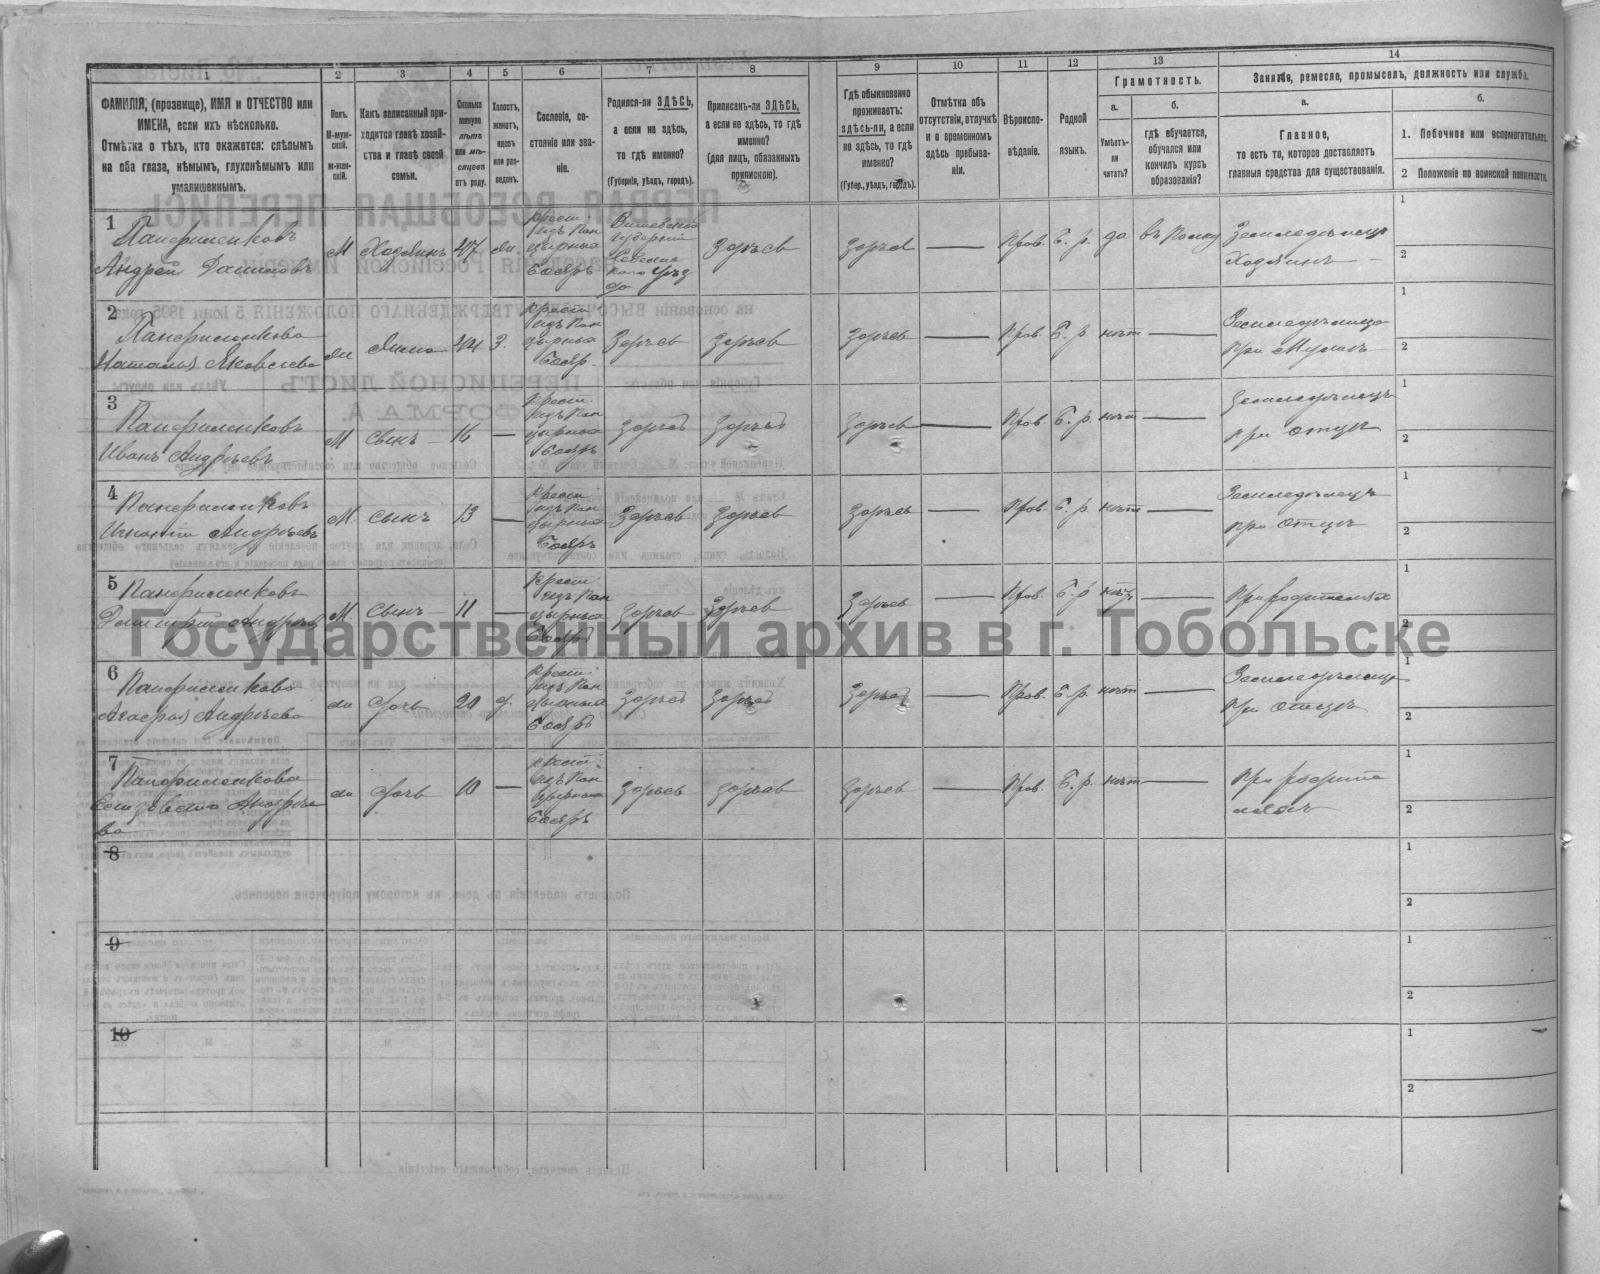 1 2 3 4 5 6 7 8 9 10 11 12 13 14
ФАМИЛІЯ, (прозвище), ИМЯ и ОТЧЕСТВО или
ИМЕНА, если ихъ нѣсколько.
Отмѣтка о тѣхъ, кто окажется: слѣпымъ
на оба глаза, нѣмымъ, глухонѣмымъ или
умалишеннымъ.
Полъ.
М-муж-
ской.
ж-жен-
скій.
Какъ записанный при-
ходится главѣ хозяй-
ства и главѣ своей
семьи.
Сколько
минуло
лѣтъ
или мѣ-
сяцевъ
отъ роду.
Холостъ,
женатъ,
вдовъ
или раз-
веденъ.
Сословіе, со-
стояніе или зва-
ніе.
Родился-ли ЗДѢСЬ,
а если не здѣсь,
то гдѣ именно?
(Губернія, уѣздъ, городъ).
Приписанъ-ли ЗДѢСЬ,
а если не здѣсь, то гдѣ
именно?
(для лицъ, обязанныхъ
припискою).
Гдѣ обыкновенно
проживаетъ:
здѣсь-ли, а если
не здѣсь, то гдѣ
именно?
(Губер., уѣздъ, городъ).
Отмѣтка объ
отсутствіи, отлучкѣ
и о временномъ
здѣсь пребыва-
ніи.
Вѣроиспо-
вѣданіе.
Родной
языкъ.
Грамотность.
а.
Умѣетъ-
ли
читать?
б.
гдѣ обучается,
обучался или
кончилъ курсъ
образованія?
Занятіе, ремесло, промыселъ, должность или служба.
а.
Главное,
то есть то, которое доставляетъ
главныя средства для существованія.
б.
1. Побочное или вспомогательное.
2 Положеніе по воинской повинности.
1
Панфиленковъ
Андрей Даниловъ
М Хозяинъ 47 жн.
крест.
изъ Пан
цырныхъ
Бояръ
Витебской
губерніи
Уѣзд
Здѣсь Здѣсь — Прав. Б. р. да въ Полку
Земледѣлецъ
Хозяинъ
1
2
2
Панфиленкова
Наталья Яковлева
жн Жена 44 З.
крест.
изъ Пан
цырныхъ
Бояр.
Здѣсь Здѣсь Здѣсь — Прав. Б. р. нѣт —
Земледѣлица
при Мужѣ
1
2
3
Панфиленковъ
Иванъ Андреевъ
М Сынъ 16 —
крест.
изъ Пан
цырныхъ
Бояръ
Здѣсь Здѣсь Здѣсь — Прав. Б. р. нѣт —
Земледѣлецъ
при Отцѣ
1
2
4
Панфиленковъ
Игнатій Андреевъ
М. Сынъ 13 —
крест.
изъ Пан
цырныхъ
Бояръ
Здѣсь Здѣсь Здѣсь — Прав. Б. р. нѣт —
Земледѣлецъ
при Отцѣ
1
2
5
Панфиленковъ
Дмитрій Андреевъ
М. Сынъ 11 —
крест.
изъ Пан
цырныхъ
Бояръ
Здѣсь Здѣсь Здѣсь — Прав. Б. р нѣт —
При родителяхъ
1
2
Государственный архив в г. Тобольске
6
Панфиленкова
Агафья Андреева
жн Дочь 20 д.
крест.
изъ Пан
цырныхъ
Бояръ
Здѣсь Здѣсь Здѣсь — Прав. Б. р. нѣт —
Земледѣлица
при Отцѣ
1
2
7
Панфиленкова
Елизавета Андрее
ва
жн Дочь 10 —
крест.
изъ Пан
цырныхъ
Бояръ
Здѣсь Здѣсь Здѣсь — Прав. Б. р. нѣт —
При родите
ляхъ
1
2
8
1
2
9
1
2
10
1
2